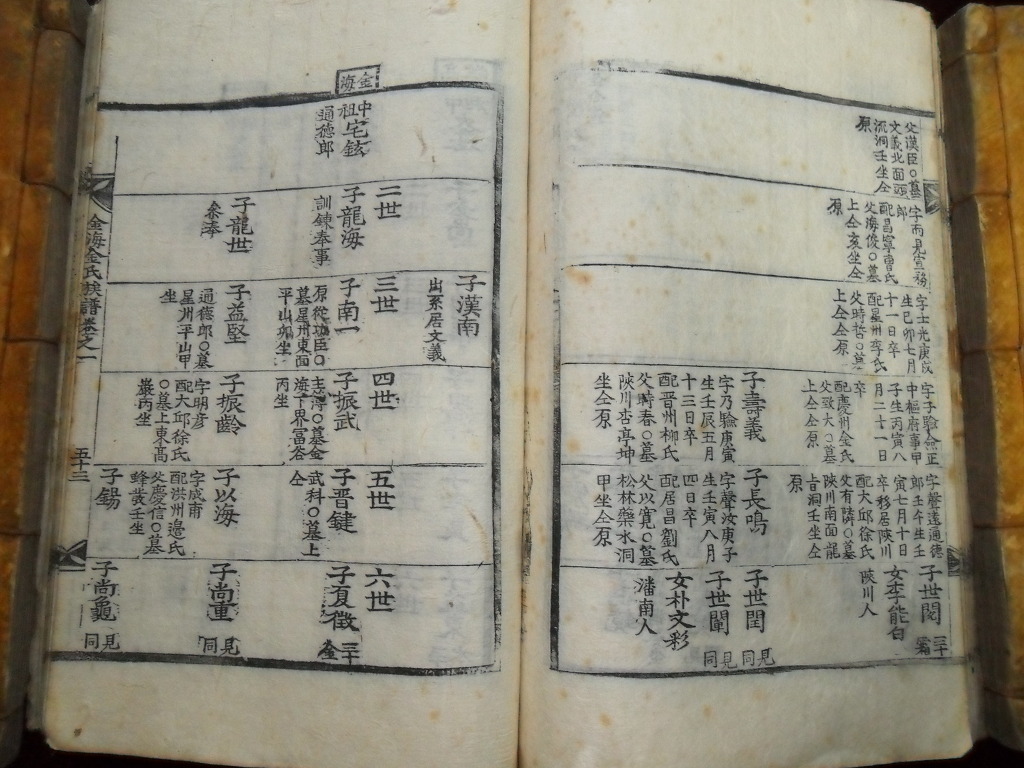 父漢臣○墓
文義北面
流洞壬坐仝
原
字而見宣務
郎
配昌寧曺氏
父海俊○墓
上仝亥坐仝
原
字士光庚戌
生己卯七月
十一日卒
配星州李氏
父時哲○墓
上仝仝原
字子驗僉正
中樞府事甲
子生丙寅八
月二十一日
卒
配慶州金氏
父致大○墓
上仝仝原
子壽義
字乃驗庚寅
生壬辰五月
十三日卒
配晋州柳氏
父時春○墓
陜川杏亭坤
坐仝原
字聲遠通德
郎壬午生壬
寅七月十日
卒移居陜川
配大邱徐氏
父有隣○墓
陜川南面龍
洞壬坐仝
原
子長鳴
字聲汝庚子
生壬寅八月
四日卒
配居昌劉氏
父以寬○墓
松林藥水洞
甲坐仝原
子世閱
三十
霜
女李能白
陜川人
子世閏
見同
子世闡
見同
女朴文彩
潘南人
金海
中祖宅鉉
通德郎
子漢南
出系居文義
二世
子龍海
訓鍊奉事
子龍世
參奉
三世
子南一
原從功臣○
墓星州東面
平山卯坐
子益堅
通德郎○墓
星州平山甲
坐
四世
子振武
主簿○墓金
海下界冨谷
丙坐
子振齡
字明彦
配大邱徐氏
○墓上東髙
巖丙坐
五世
子晋鍵
武科○墓上
仝
子以海
字咸甫
配洪州邊氏
父慶信○墓
蜂巖壬坐
子錫
六世
子复徵
三十
金
子尚重
見同
子尚龜
見同
金海金氏族譜卷之一
五十三